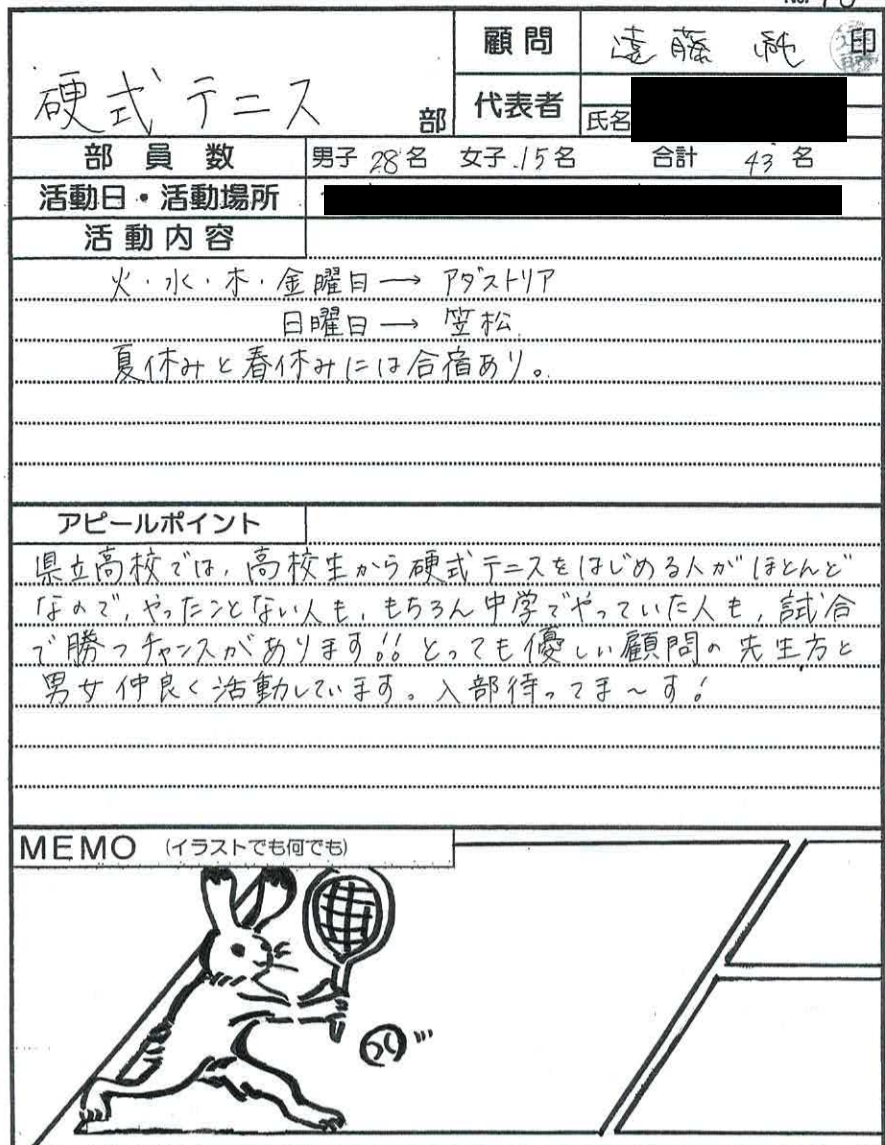 顧問 遠藤 純 印
硬式テニス 部
代表者 氏名
部員数 男子 28名 女子 15名 合計 43名
活動日・活動場所
活動内容
火・水・木・金曜日→アダストリア
日曜日→笠松
夏休みと春休みには合宿あり。
アピールポイント
県立高校では、高校生から硬式テニスをはじめる人がほとんど
なので、やったことない人も、もちろん中学でやっていた人も、試合
で勝つチャンスがあります!! とっても優しい顧問の先生方と
男女仲良く活動しています。入部待ってま〜す!
MEMO (イラストでも何でも)